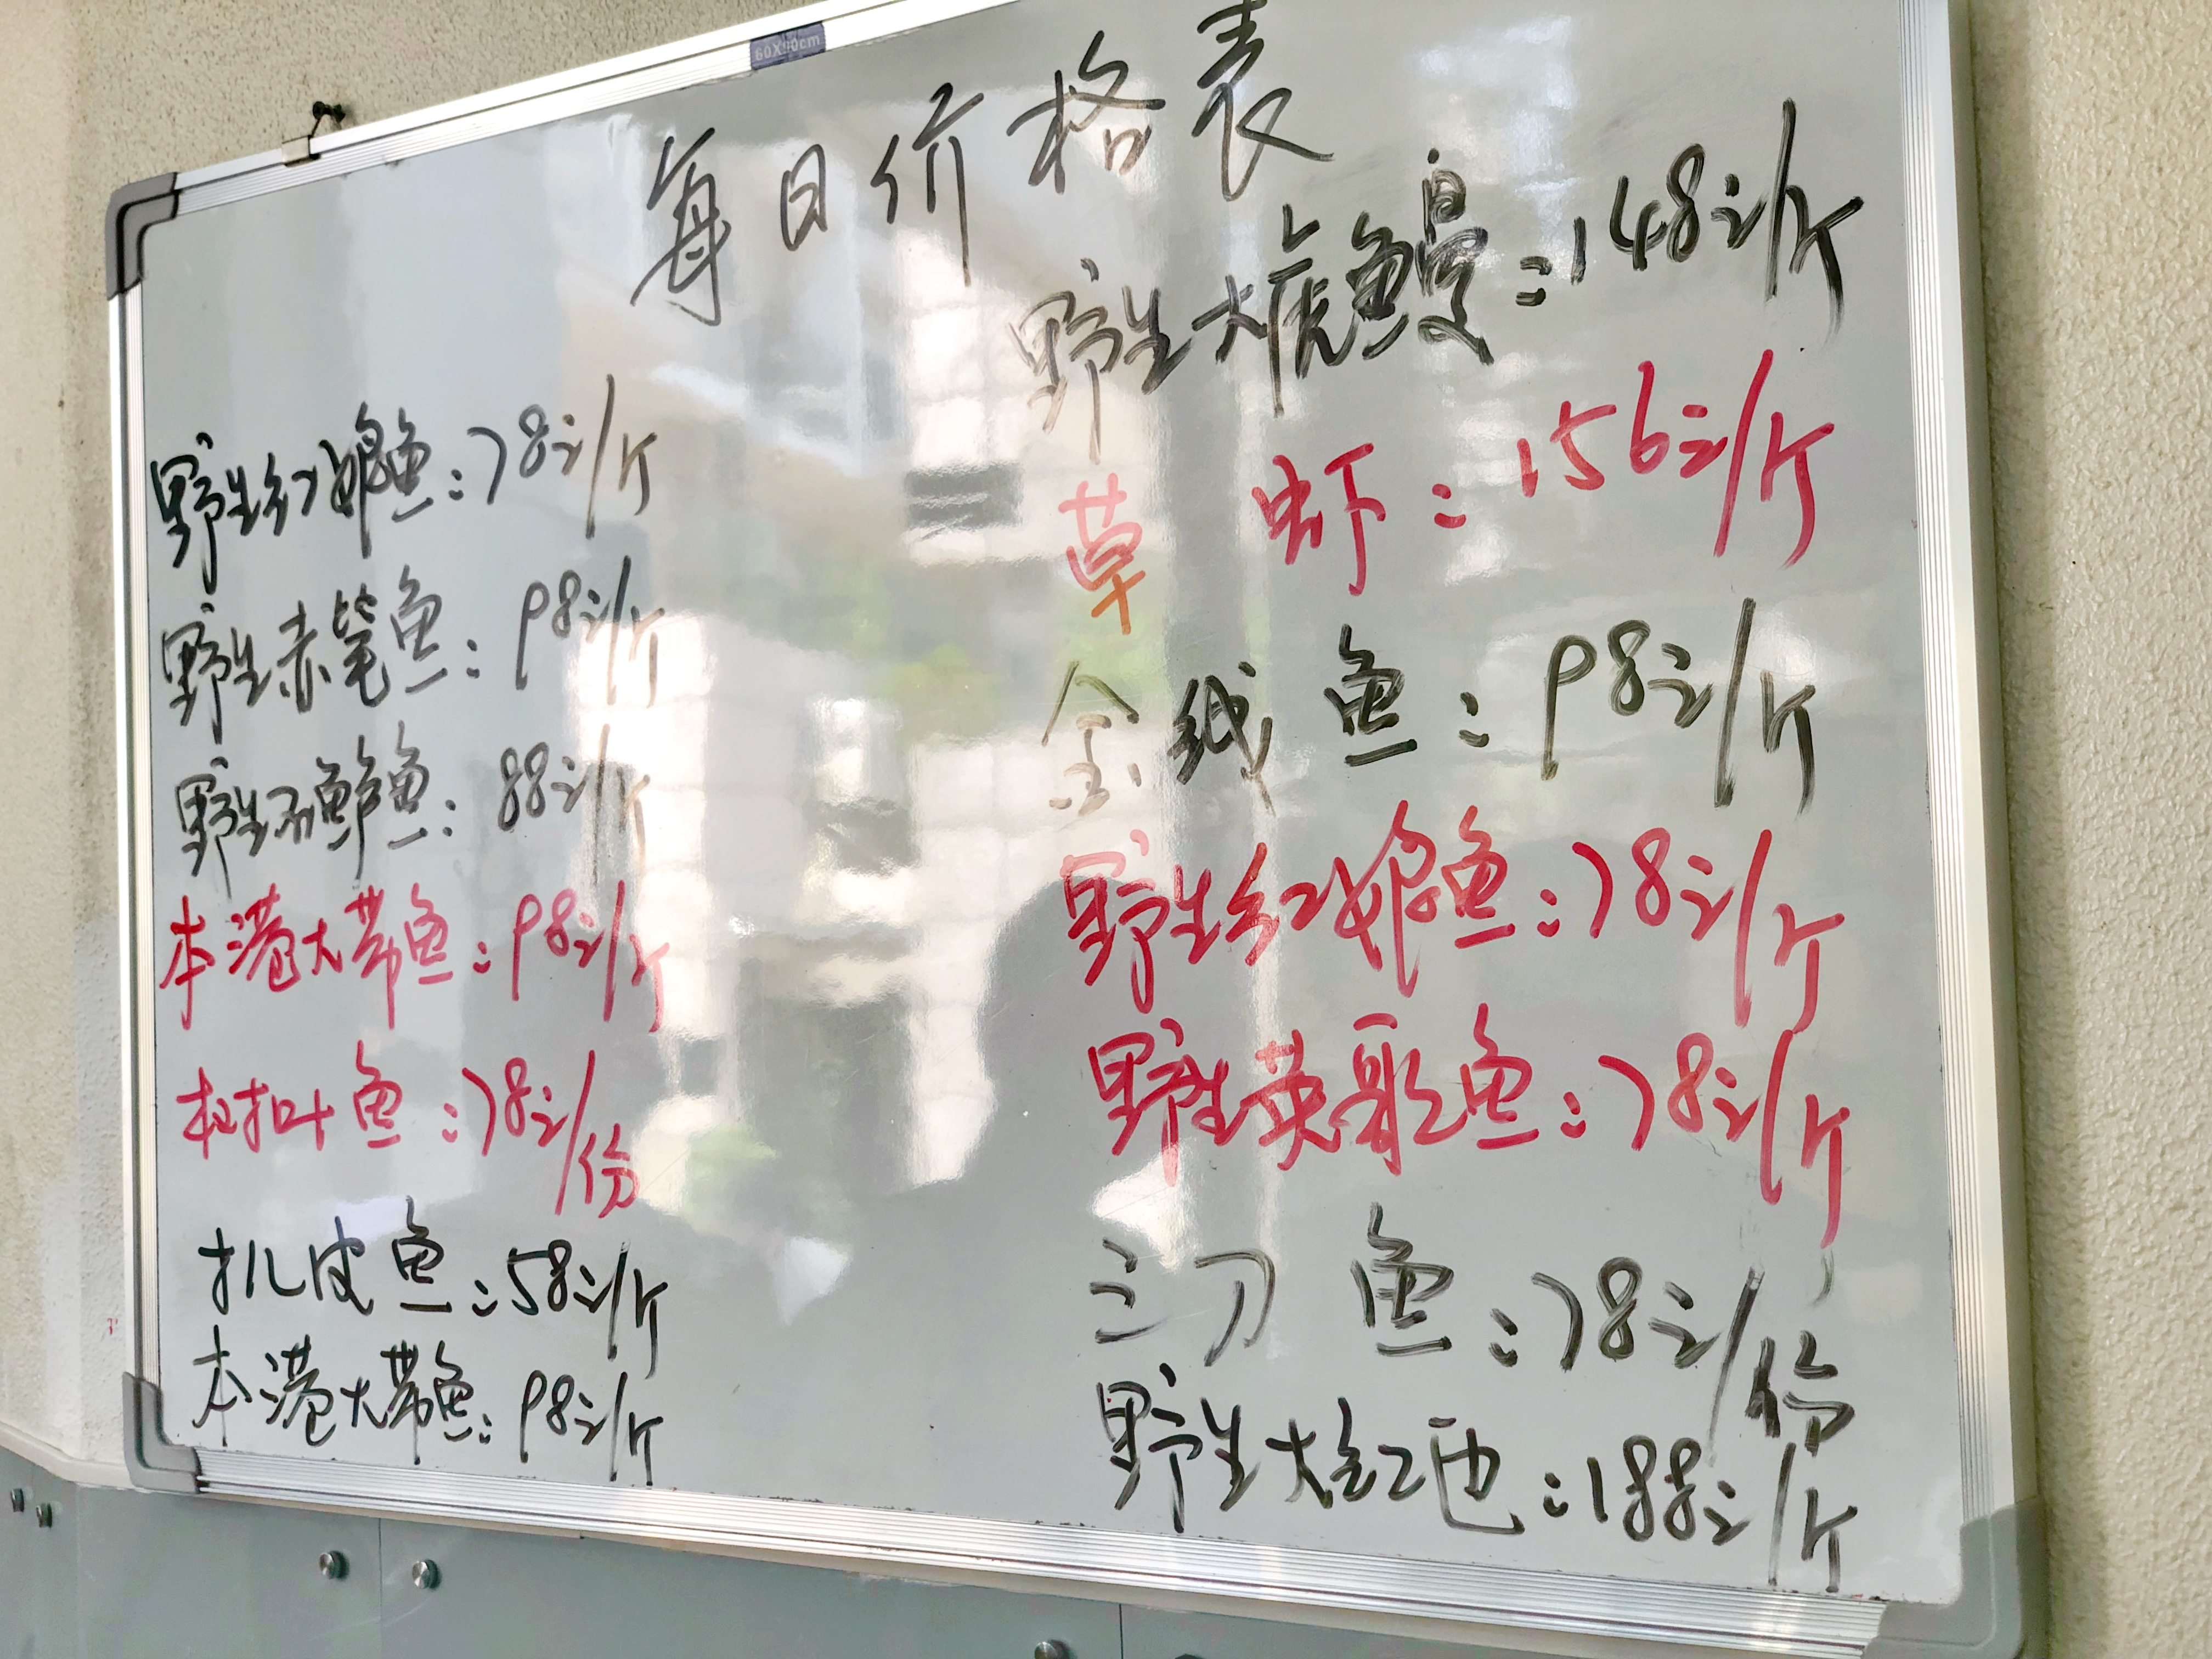 60X90cm
每日价格表
野生红娘鱼:78元/斤
野生赤笔鱼:98元/斤
野生鱼:88元/斤
本港大带鱼:98元/斤
叶鱼:78元/份
扒皮鱼:58元/斤
本港大带鱼:98元/斤
野生大虎鳗:148元/斤
草虾:156元/斤
金线鱼:98元/斤
野生红娘鱼:78元/斤
野生英歌鱼:78元/斤
三刀鱼:78元/份
野生大红:188元/斤